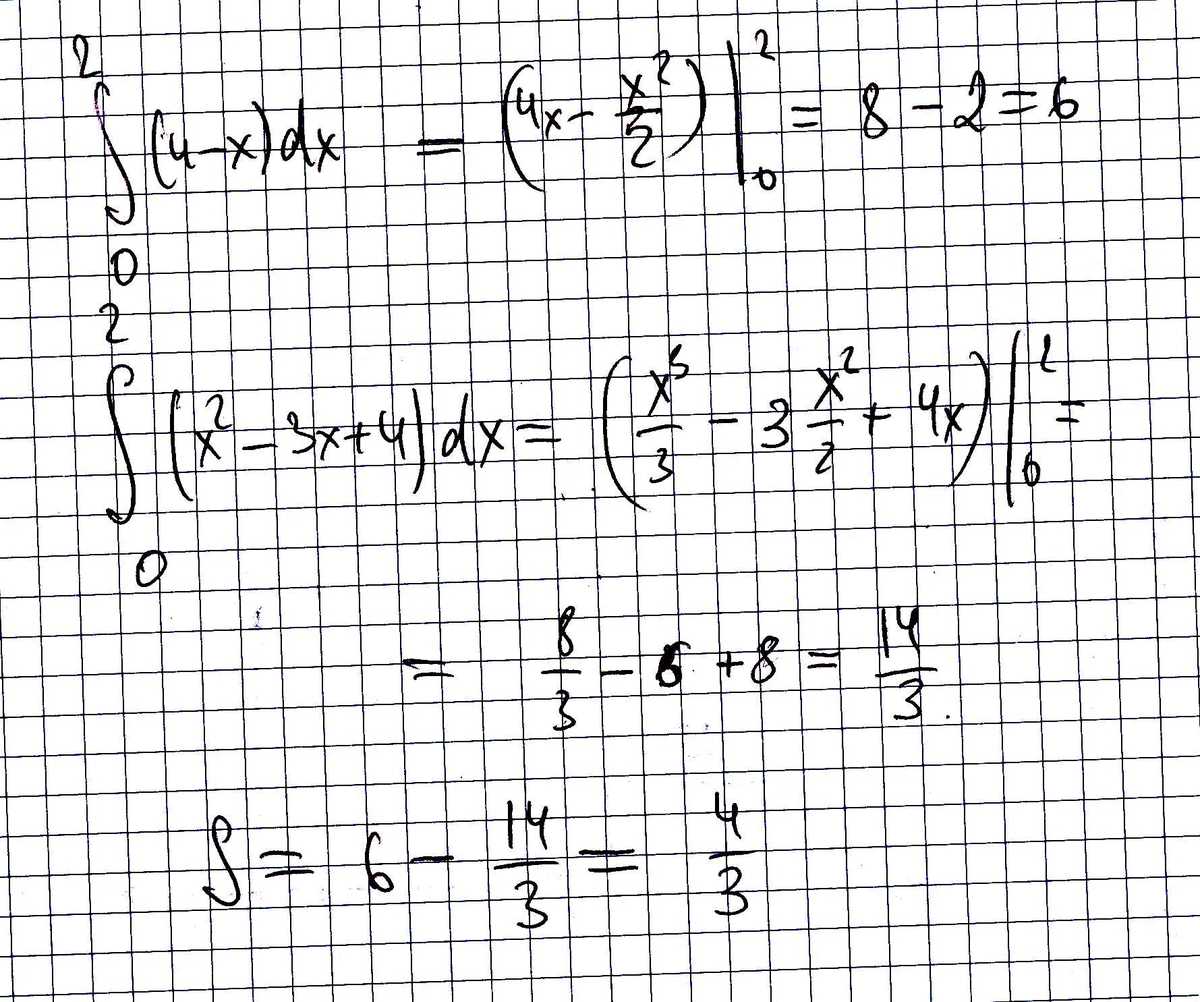 ∫₀² (4-x)dx = (4x - x²/2)|₀² = 8 - 2 = 6
∫₀² (x² - 3x + 4)dx = (x³/3 - 3 x²/2 + 4x)|₀² =
= 8/3 - 6 + 8 = 14/3.
S = 6 - 14/3 = 4/3